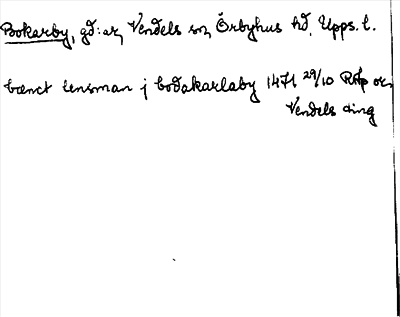 Bokarby, gd:ar, Vendels sn, Örbyhus hd, Upps. l.
bænct lensman j bodakarlaby 1471 29/10 RAp or,
Vendels ting